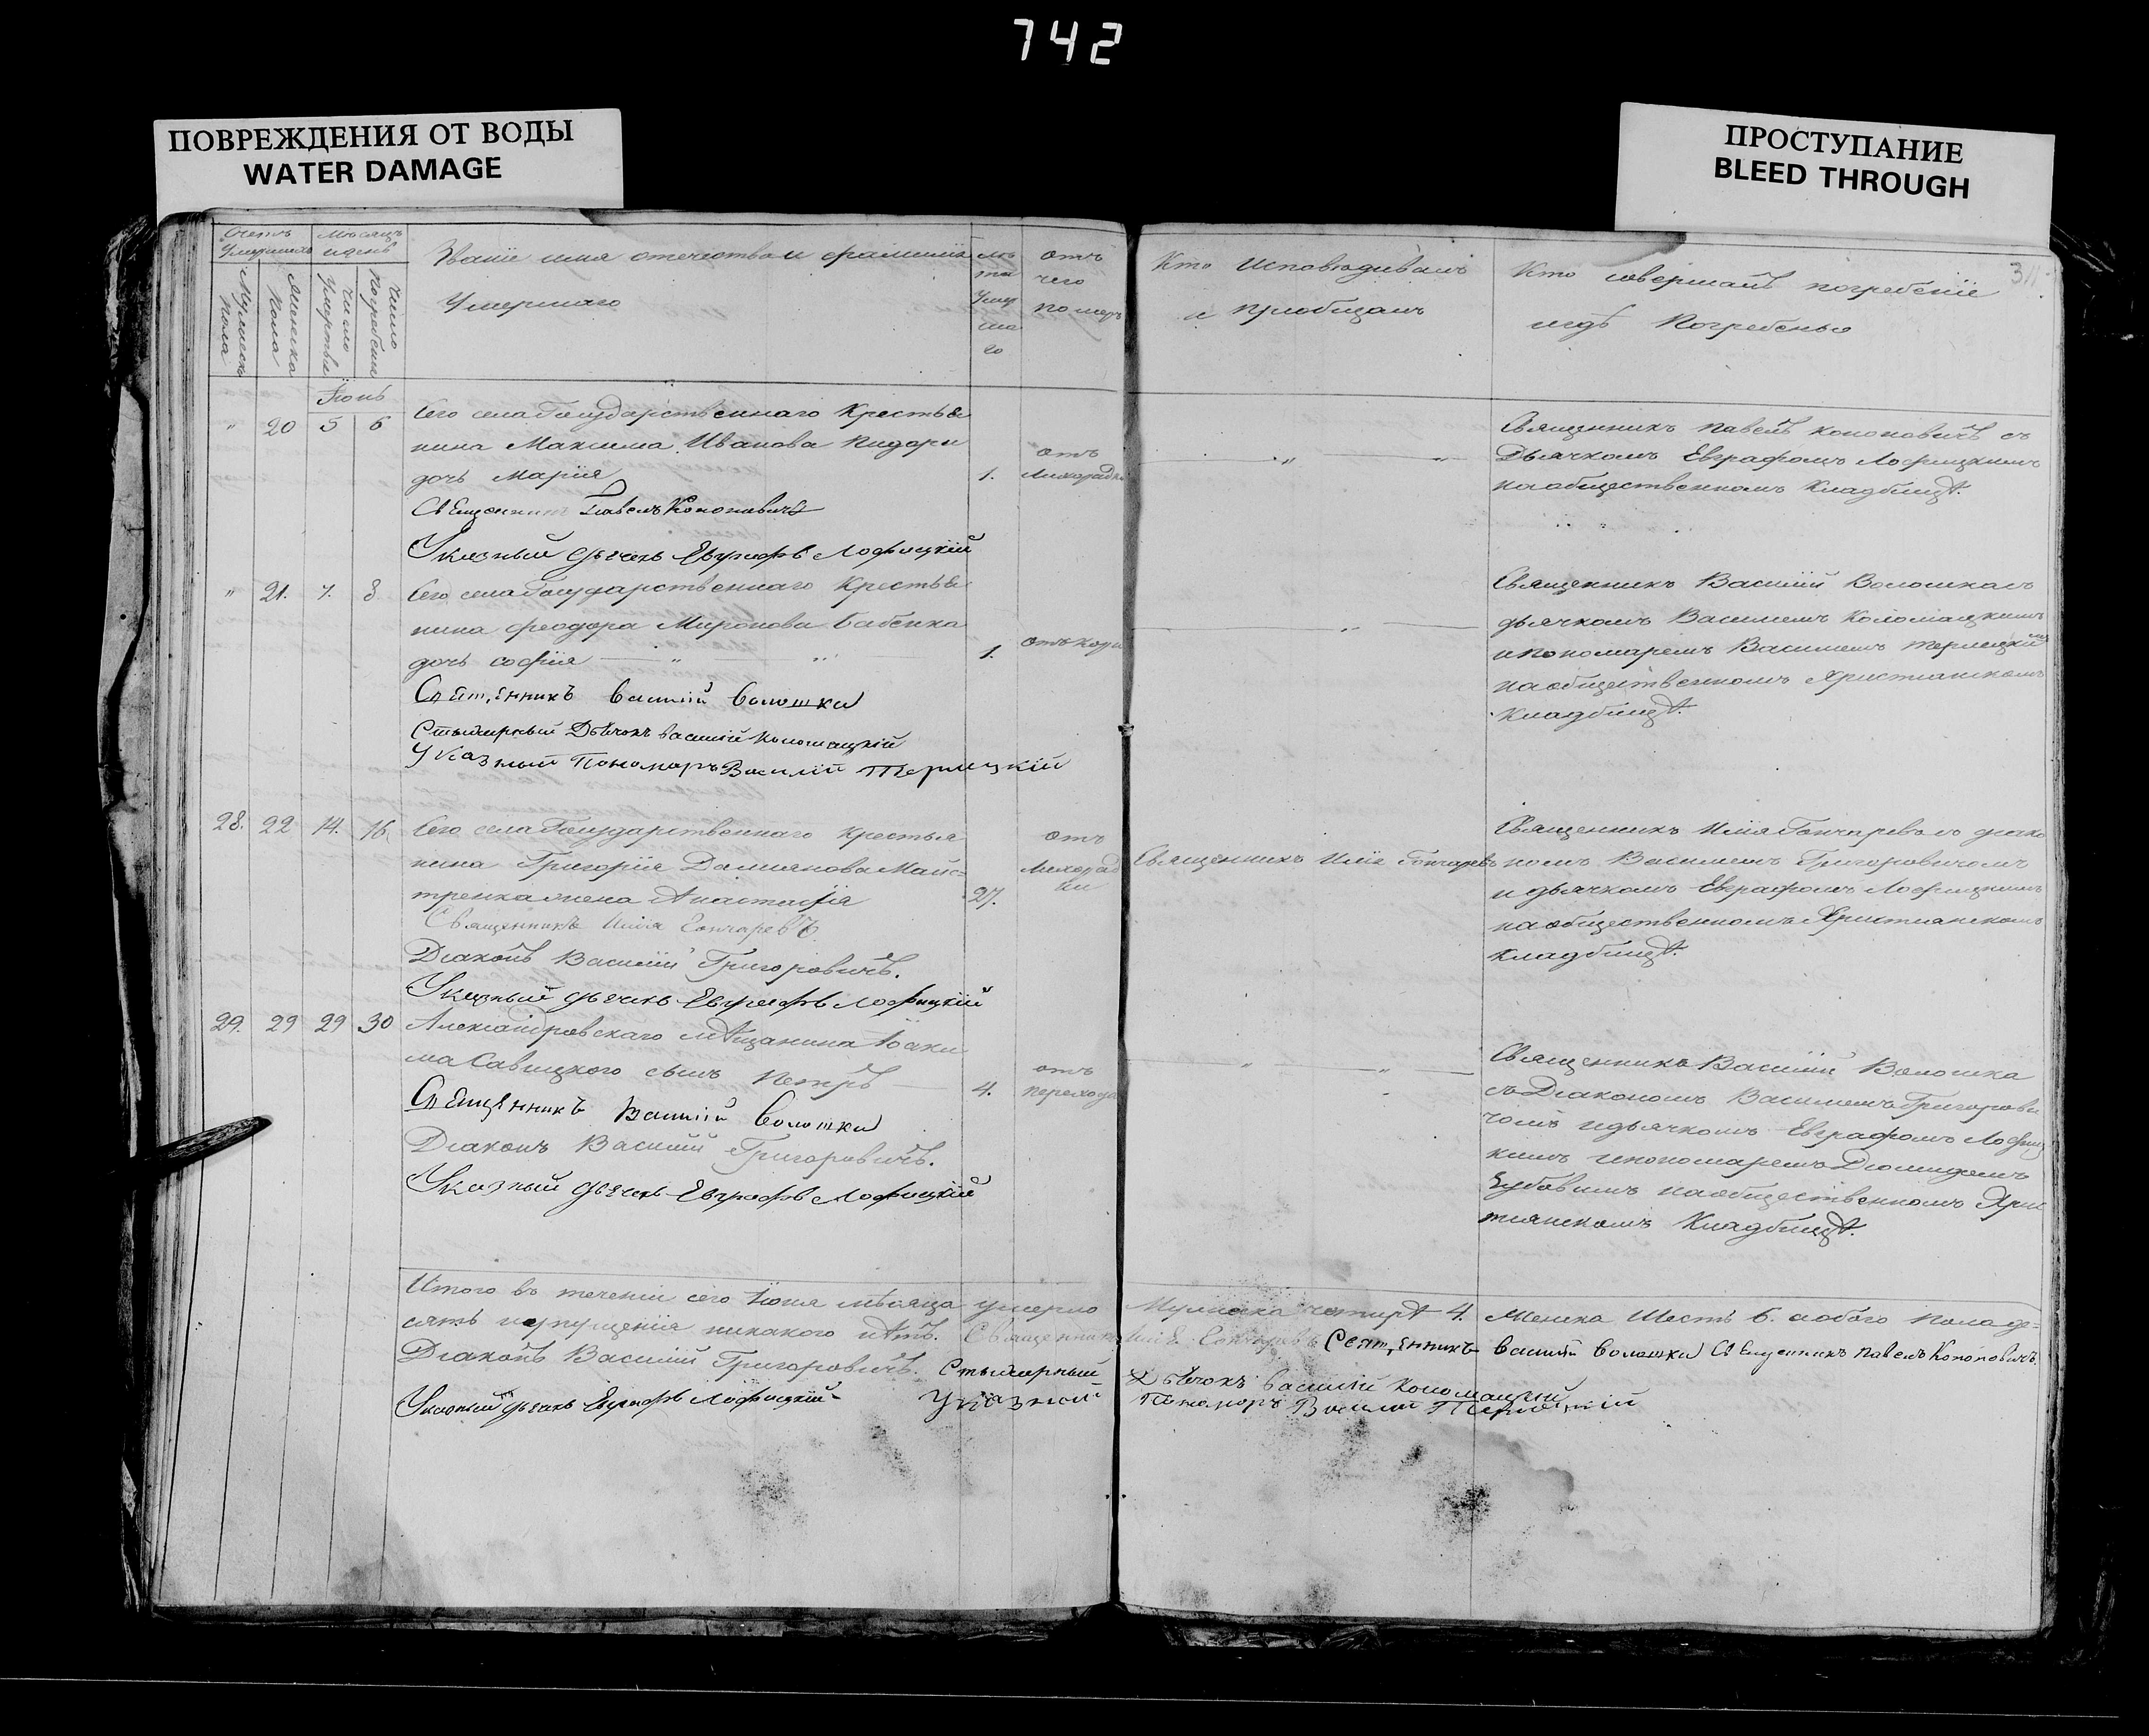 742
ПОВРЕЖДЕНИЯ ОТ ВОДЫ
WATER DAMAGE
ПРОСТУПАНИЕ
BLEED THROUGH
Счетъ Умершихъ
Мѣсяцъ и день
Мужеска Пола
Женска Пола
Число Умертвія
Число Погребенія
Званіе имя отечество и фамилія
Умершаго
лѣта Умершаго
отъ чего померъ
Кто Исповѣдывалъ
и пріобщалъ
Кто совершалъ погребеніе
игдѣ Погребены
Іюнь
" 20 5 6
Сего села Государственнаго Крестья
нина Максима Иванова
дочь Марія
1.
отъ
Лихорадки
Священникъ Павелъ Кононовичъ съ
Дьячкомъ Евграфомъ Лофицкимъ
наобщественномъ Кладбищѣ.
Священникъ Павелъ Кононовичъ
Указный дьячекъ Евграфъ Лофицкій
" 21. 7. 8
Сего села Государственнаго Крестья
нина Феодора Миронова Бабенка
дочь Софія
1.
отъ кори
Священникъ Василій Волошка съ
дьячкомъ Василіемъ Коломацкимъ
ипономаремъ Василіемъ Терлецкимъ
наобщественномъ Христианскомъ
Кладбищѣ.
Священникъ Василій Волошка
Стихарный Дьячокъ Василій Коломацкій
Указный Пономаръ Василій Терлецкій
28. 22 14. 16.
Сего села Государственнаго крестья
нина Григорія Даміянова Май-
стренка жена Анастасія
27.
отъ
Лихорад
ки
Священникъ Илія Гончаревъ
Священникъ Илія Гончаревъ съ діако
номъ Василіемъ Григоровичомъ
и дьячкомъ Евграфомъ Лофицкимъ
наобщественномъ Христианскомъ
кладбищѣ.
Священникъ Илія Гончаревъ
Діаконъ Василій Григоровичъ.
Указный дьячекъ Евграфъ Лофицкій
29. 29 29 30
Александровскаго мѣщанина Іоаки
ма Савицкого сынъ Петръ
4.
отъ
перехода
Священникъ Василій Волошка
съ Діакономъ Василіемъ Григорови
чомъ идьячкомъ Евграфомъ Лофиц
кимъ ипономаремъ Діомидомъ
наобщественномъ Хрис
тіянскомъ Кладбищѣ.
Священникъ Василій Волошка
Діаконъ Василій Григоровичъ.
Указный дьячекъ Евграфъ Лофицкій
Итого въ теченіи сего Іюня мѣсяца умерло Мужеска четырѣ 4. Женска Шесть 6. аобого пола де-
сять пропущенія никакого нѣтъ. Священникъ Илія Гончаревъ Священникъ Василій Волошка Священникъ Павелъ Кононовичъ.
Діаконъ Василій Григоровичъ. Стихарный Дьячокъ Василій Коломацкій
Указный дьячекъ Евграфъ Лофицкій Указный Пономаръ Василій Терлецкій